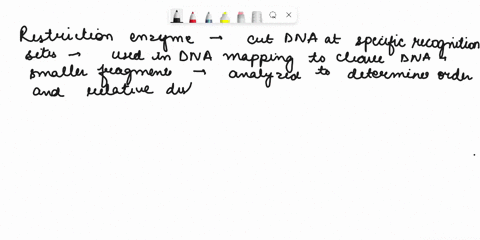 Restriction enzyme → cut DNA at specific recognition
sets → used in DNA mapping to cleave DNA
smaller fragments → analyzed to determine order
and relative